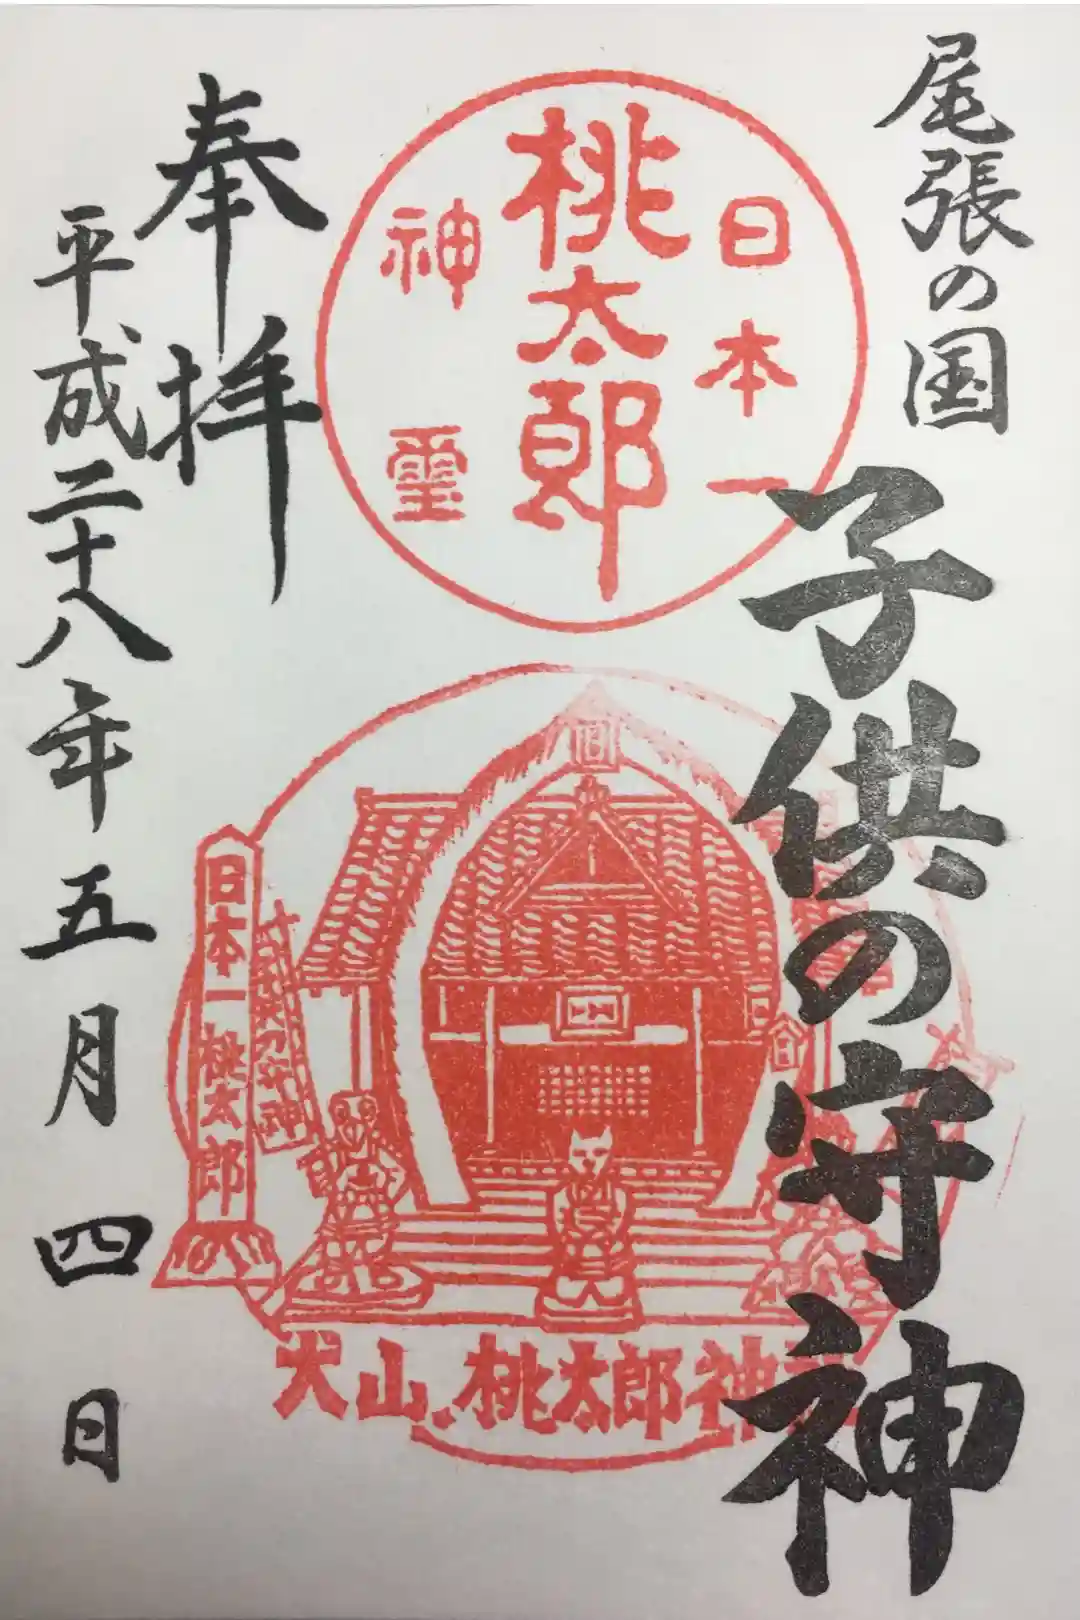 尾張の国
子供の守神
日本一
桃太郎
神璽
奉拝
平成二十八年五月四日
日本一桃太郎
犬山桃太郎神